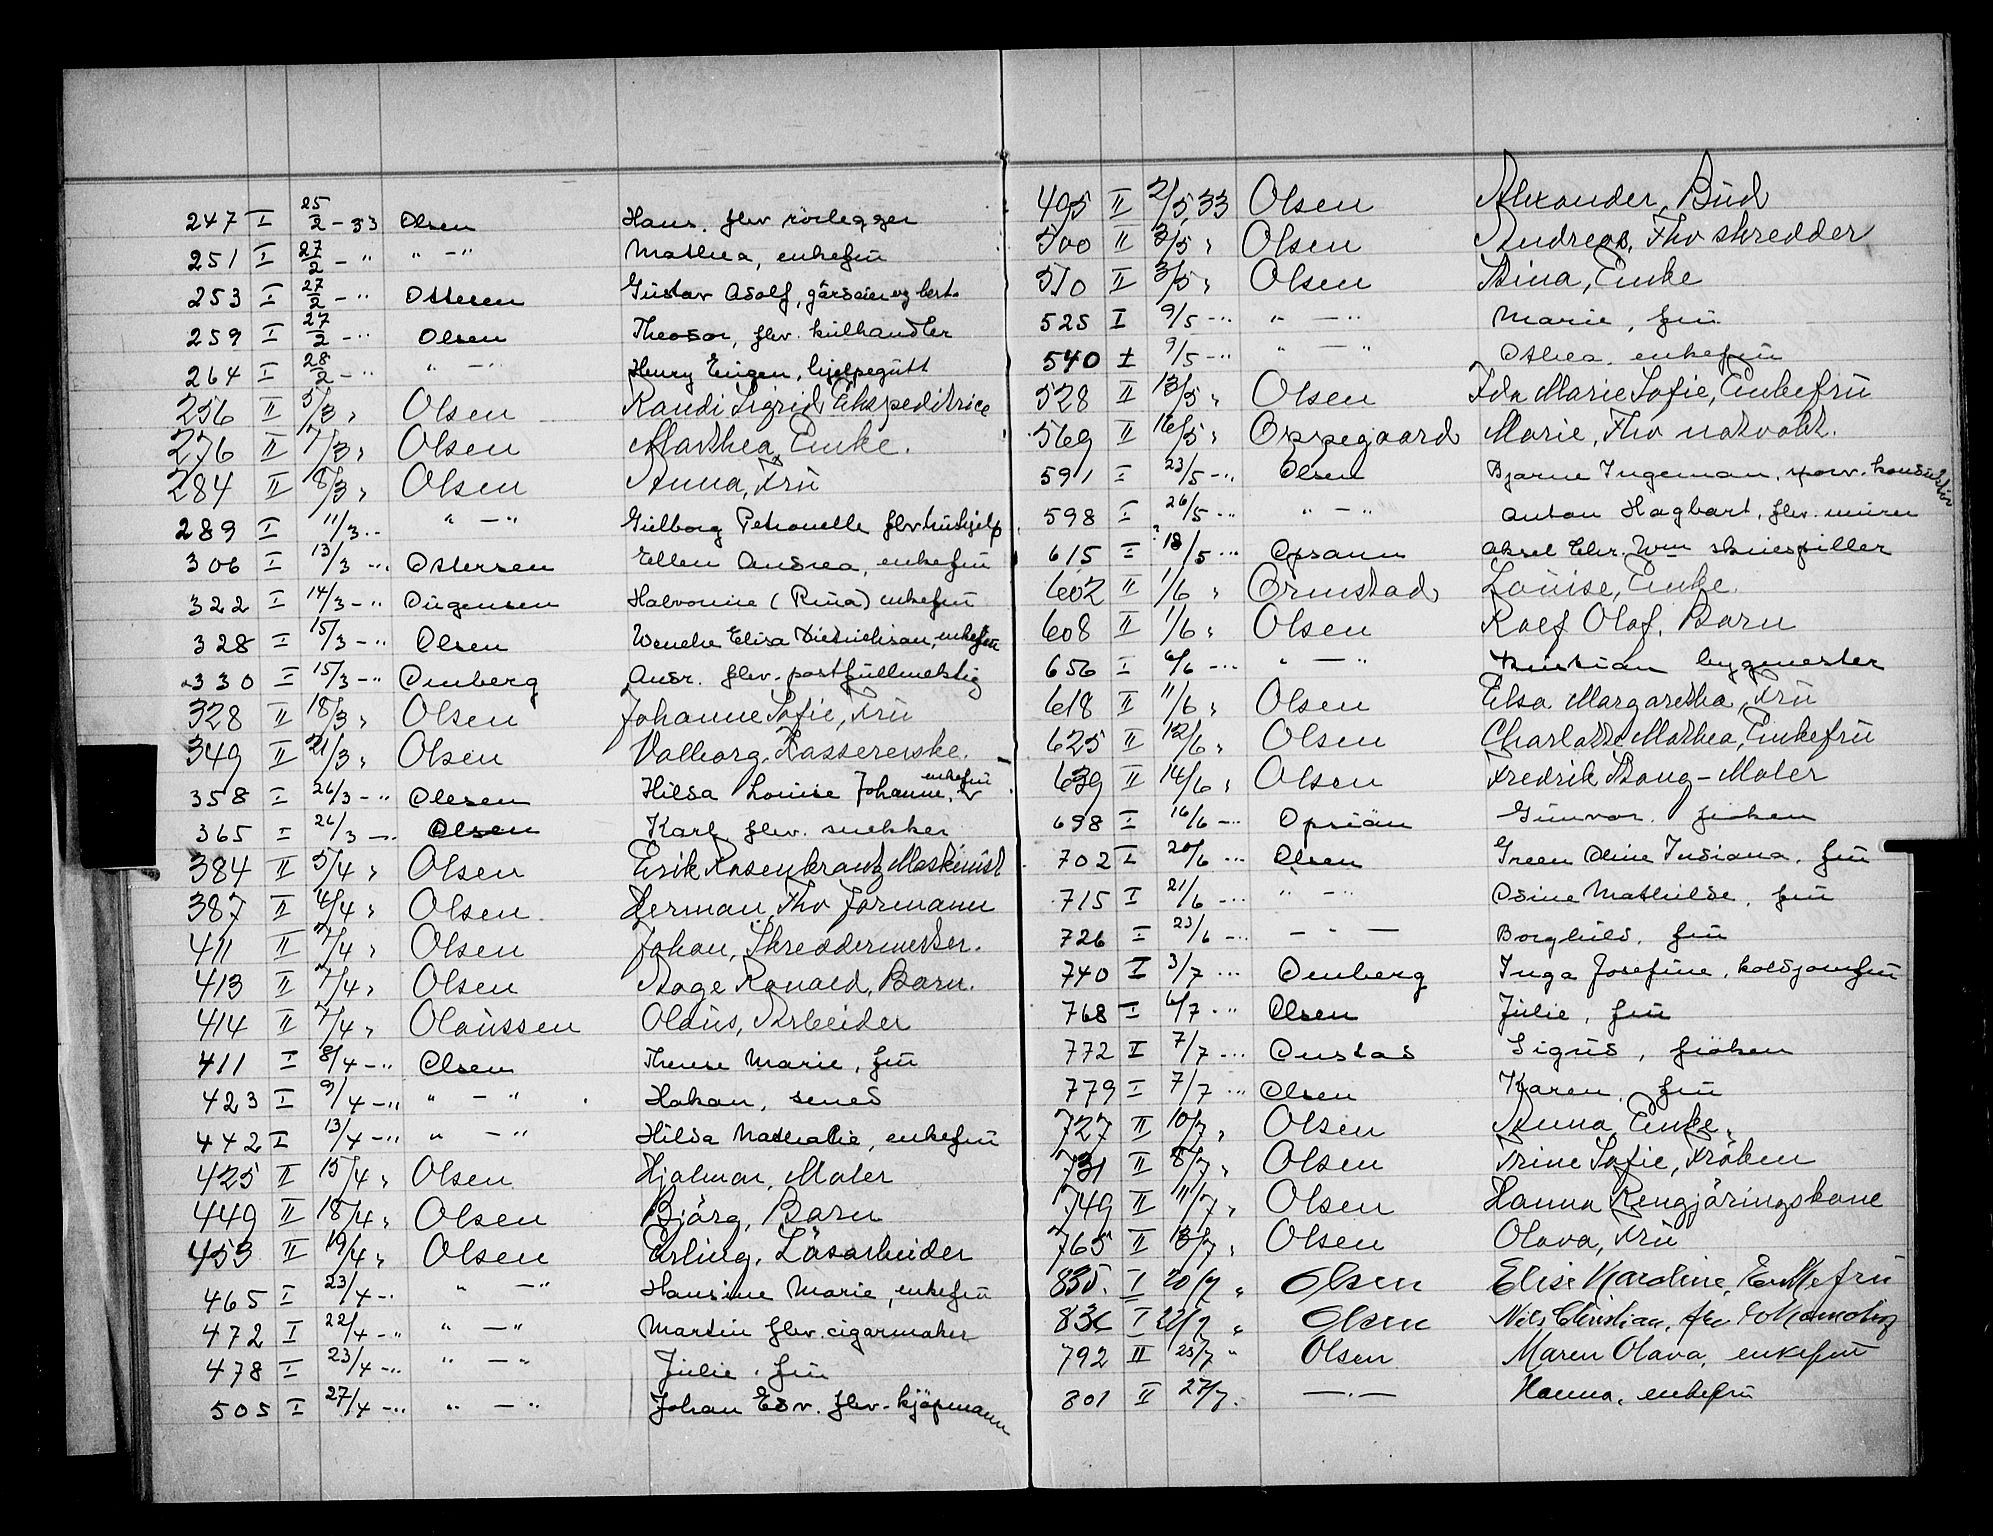 247 I 25/2 - 33 Olsen Hans. fhv rörlegger
251 I 27/2 - " " - " Mathea, enkefrü
253 I 27/2 - " Ottesen Güstav Adolf, gårdeier og
259 I 27/2 - " Olsen Theodor, fhv. külhandler
264 I 28/2 - " " - " Henry Eugen, hjelpegütt
256 II 5/3 " Olsen Randi Sigrid Ekspeditrice
276 II 7/3 " Olsen Marthea, Enke.
284 II 8/3 " Olsen Anna, Frü
289 I 11/3 - " " - " Gülborg Petronelle fhv hüshjelp
306 I 13/3 - " Ottersen Ellen Andrea, enkefrü
322 I 14/3 - " Halvorine (Rina) enkefrü
328 I 15/3 - " Olsen Wenche Elisa Dietrichson, enkefrü
330 I 15/3 - " Omberg Andr. fhv. postfüllmektig
328 II 18/3 " Olsen Johanne Sofie, Frü
349 II 21/3 " Olsen Valborg, Kassererske.
358 I 26/3 - " Olesen Hilda Louise Johanne, enkefrü
365 I 26/3 - " Olsen Karl fhv. snekker
384 II 5/4 " Olsen Erik Rosenkrantz Maskinist
387 II 6/4 " Olsen Herman, Fhv Formann
411 II 7/4 " Olsen Johan, Skreddermester.
413 II 7/4 " Olsen Aage Ronald, Barn.
414 II 7/4 " Olaüssen Olaüs, Arbeider
411 I 8/4 - " Olsen Therese Marie, frü
423 I 9/4 - " " - " Hakon, send
442 I 13/4 - " " - " Hilda Nathalie, enkefrü
425 II 15/4 " Olsen Hjalmar, Maler
449 II 18/4 " Olsen Bjørg, Barn
453 II 19/4 " Olsen Erling, Løsarbeider
465 I 23/4 - " " - " Hansine Marie, enkefrü
472 I 22/4 - " " - " Martin fhv. cigarmaker
478 I 23/4 - " " - " Jülie, frü
505 I 27/4 - " " - " Johan Edv. fhv. kjöpmann
495 II 2/5 33 Olsen Alexander, Büd
500 II 3/5 " Olsen Andreas, Fhv skredder
510 II 3/5 " Olsen Enke
525 I 9/5 - " " - " Marie, frü
540 I 9/5 - " " - " Othea, enkefrü
528 II 13/5 " Olsen Ida Marie Sofie, Enkefrü
569 II 16/5 " Oppegaard Marie, Fhv natvakt.
591 I 23/5 - " Olsen Bjarne Ingeman,
598 I 26/5 - " " - " Anton Hagbart, fhv. mürer
615 I 18/5 - " Opsann Aksel Chr. Wm sküespiller
602 II 1/6 " Ormstad Loüise, Enke.
608 II 1/6 " Olsen Rolf Olaf, Barn
656 I 6/6 - " " - " Kristian bygmester
618 II 11/6 " Olsen Elsa Margaretha, Frü
625 II 12/6 " Olsen Charlotte Mathea, Enkefrü
639 II 14/6 " Olsen Fredrik Bang - Maler
698 I 16/6 - " Günvor. fröken
702 I 20/6 - " Olsen Green Oline Indiana, frü
715 I 21/6 - " " - " Osine Mathilde, frü
726 I 23/6 - " - " - Borghild, frü
740 I 3/7 - " Omberg Inga Josefine, koldjomfrü
768 I 6/7 - " Olsen Jülie, frü
772 I 7/7 - " Onstad Sigrid, fröken
779 I 7/7 - " Olsen Karen, frü
727 II 10/7 " Olsen Anna, Enke.
731 II 8/7 " Olsen Trine Sofie, Frøken
749 II 11/7 " Olsen Hanna Rengjøringskone
765 II 13/7 " Olsen Olava, Frü
835 I 20/7 " Olsen Elise Karoline, Enkefrü
836 I 22/7 " Olsen Nils Christian, fhv
792 II 25/7 " Olsen Maren Olava, enkefrü
801 II 27/7. - " - Hanna, enkefrü